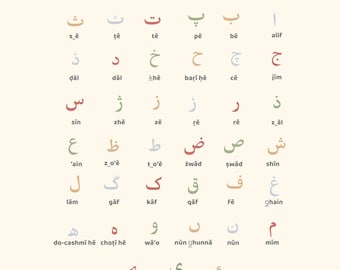 ا ب پ ت ٹ ث
s_ē ṭē tē pē bē alif
ج چ ح خ د ڈ
ḍāl dāl k͟hē baṛī ḥē cē jīm
ذ ر ڑ ز ژ س
sīn zhē zē ṛē rē z_āl
ش ص ض ط ظ ع
'ain z̤o'ē t̤o'ē żwād ṣwād shīn
غ ف ق ک گ ل
lām gāf kāf qāf fē g͟hain
م ن ں و ہ ھ
do-cashmī hē choṭī hē wā'o nūn g͟hunnā nūn mīm
ی